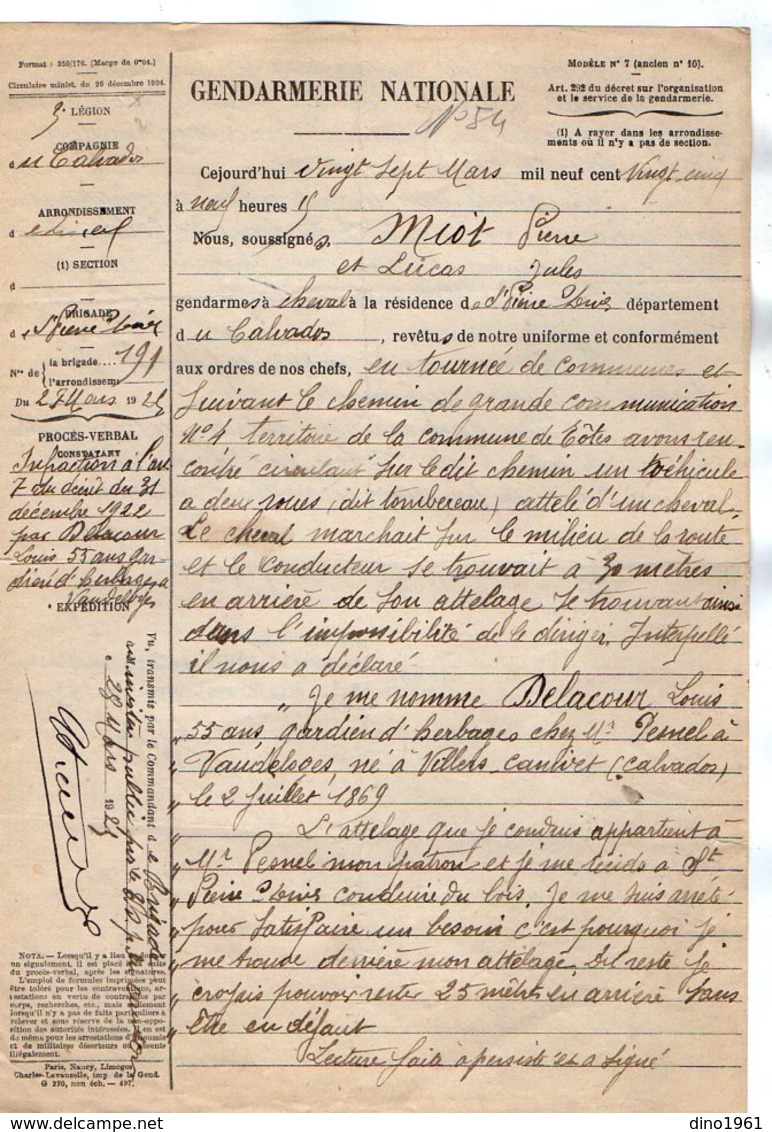 Format : 250/176. (Marge de 0m04.)
Circulaire minist. du 26 décembre 1904.
3e LÉGION
COMPAGNIE
du Calvados
ARRONDISSEMENT
d
(1) SECTION
d
BRIGADE
de St Pierre s/Dives
Nos de { la brigade.... 191
l'arrondissemt
Du 27 Mars 1925
PROCÈS-VERBAL
CONSTATANT
Infraction à l'art
7 du décret du 31
décembre 1922
par Delacour
Louis 55 ans gar
dien d'herbages à
Vaudeloges
EXPÉDITION
Vu, transmis par le Commandant d e Brigade
28 Mars 1925
NOTA. — Lorsqu'il y a lieu de donner
un signalement, il est placé à la suite
du procès-verbal, après les signatures.
L'emploi de formules imprimées peut
être toléré pour les contraventions, ar-
restations en vertu de contraintes par
corps, recherches, etc., mais seulement
lorsqu'il n'y a pas de faits particuliers à
relever et sous réserve de la non-oppo-
sition des autorités intéressées. Il en est
de même pour les arrestations d'insoumis
et de militaires déserteurs ou absents
illégalement.
Paris, Nancy, Limoges
Charles-Lavauzelle, imp. de la Gend.
G 220, non éch. — 497.
MODÈLE N° 7 (ancien n° 10).
Art. 292 du décret sur l'organisation
et le service de la gendarmerie.
(1) A rayer dans les arrondisse-
ments où il n'y a pas de section.
GENDARMERIE NATIONALE
N° 54
Cejourd'hui vingt sept Mars mil neuf cent vingt cinq
à neuf heures 15
Nous, soussignés, Miot Pierre
et Lucas Jules
gendarmes à cheval à la résidence de St Pierre s/Dives département
du Calvados, revêtus de notre uniforme et conformément
aux ordres de nos chefs, en tournée de communes et
suivant le chemin de grande communication
N° 4 territoire de la commune de Tôtes avons ren-
contré circulant sur le dit chemin un véhicule
a deux roues (dit tombereau) attelé d'un cheval.
Le cheval marchait sur le milieu de la route
et le conducteur se trouvait à 30 mètres
en arrière de son attelage se trouvant ainsi
dans l'impossibilité de le diriger. Interpellé
il nous a déclaré
" Je me nomme Delacour Louis
" 55 ans gardien d'herbages chez Mr Pesnel à
" Vaudeloges, né à Villers-canivet (calvados)
" le 2 juillet 1869
" L'attelage que je conduis appartient à
" Mr Pesnel mon patron et je me rends à St
" Pierre s/Dives conduire du bois. Je me suis arrêté
" pour satisfaire un besoin c'est pourquoi je
" me trouve derrière mon attelage. Du reste je
" croyais pouvoir rester 25 mètres en arrière sans
" être en défaut
Lecture faite a persisté et a signé
dino1961